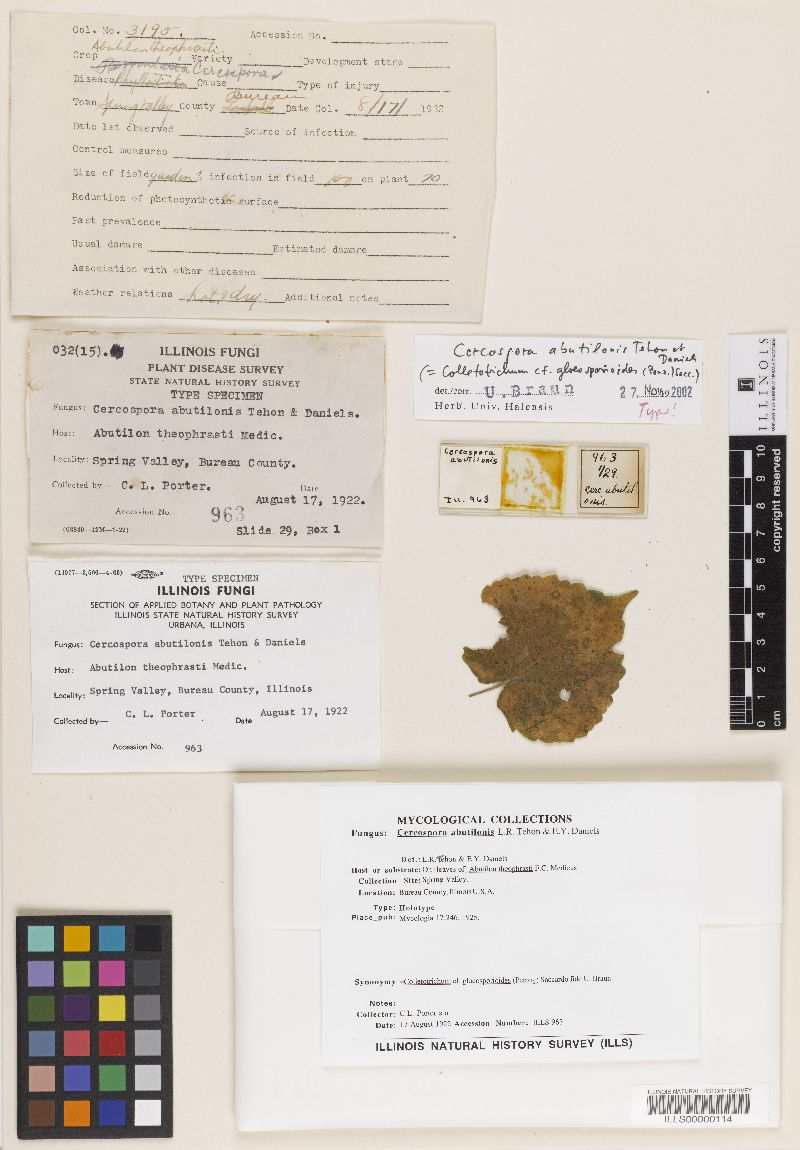 Col. No. 3195. Accession No.
Abutilon theophrasti
Crop Variety Development stage
Cercospora
Disease Phyllosticta Cause Type of injury
Bureau
Town Spring Valley County Date Col. 8/17/ 1922
Date 1st observed Source of infection
Control measures
Size of field garden % infection in field 100 on plant 20
Reduction of photosynthetic surface
Past prevalence
Usual damage Estimated damage
Association with other diseases
Weather relations hot, dry. Additional notes
032(15).
ILLINOIS FUNGI
PLANT DISEASE SURVEY
STATE NATURAL HISTORY SURVEY
TYPE SPECIMEN
Fungus: Cercospora abutilonis Tehon & Daniels.
Host: Abutilon theophrasti Medic.
Locality: Spring Valley, Bureau County.
Collected by— C. L. Porter. Date August 17, 1922.
Accession No. 963
Slide 29, Box 1
Cercospora abutilonis Tehon et Daniels
(= Colletotrichum cf. gloeosporioides (Penz.) Sacc.)
det./corr. U. Braun 27. Nov. 2002
Herb. Univ. Halensis Type!
Cercospora
abutilonis
Ill. 963
963
1/29
Cerc abutil
onis.
(14977—3,500—4-60)
TYPE SPECIMEN
ILLINOIS FUNGI
SECTION OF APPLIED BOTANY AND PLANT PATHOLOGY
ILLINOIS STATE NATURAL HISTORY SURVEY
URBANA, ILLINOIS
Fungus: Cercospora abutilonis Tehon & Daniels
Host: Abutilon theophrasti Medic.
Locality: Spring Valley, Bureau County, Illinois
Collected by— C. L. Porter Date August 17, 1922
Accession No. 963
ILLINOIS
10 9 8 7 6 5 4 3 2 1 0 cm
copyright reserved
MYCOLOGICAL COLLECTIONS
Fungus: Cercospora abutilonis L.R. Tehon & E.Y. Daniels
Det.: L.R. Tehon & E.Y. Daniels
Host or substrate: On leaves of Abutilon theophrasti F.C. Medicus
Collection Site: Spring Valley.
Location: Bureau County, Illinois U.S.A.
Type: Holotype
Place_pub: Mycologia 17:246. 1925.
Synonymy =Colletotrichum cf gloeosporioides (Penzig) Saccardo fide U. Braun
Notes:
Collector: C.L. Porter s.n.
Date: 17 August 1922 Accession Number: ILLS 963
ILLINOIS NATURAL HISTORY SURVEY (ILLS)
ILLINOIS NATURAL HISTORY SURVEY
ILLS00000114